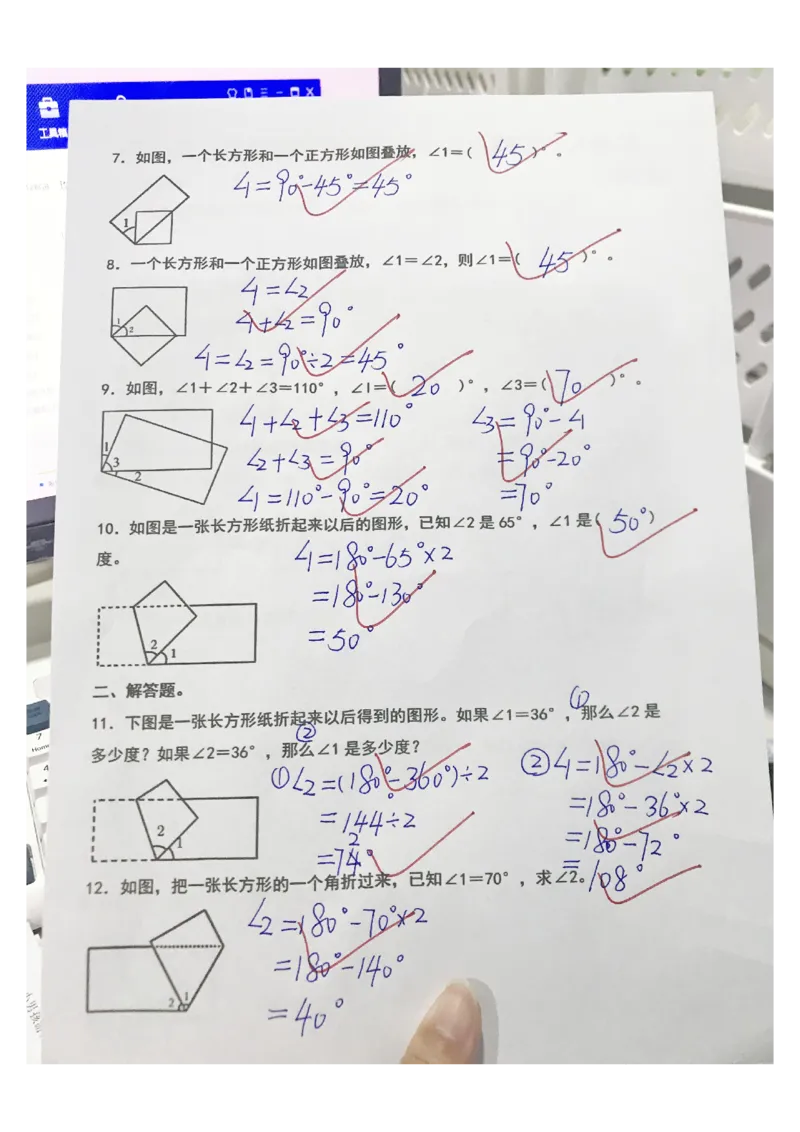 工具箱
7. 如图，一个长方形和一个正方形如图叠放，∠1=( 45 )°。
∠1=90°-45°=45°
1
8. 一个长方形和一个正方形如图叠放，∠1=∠2，则∠1=( 45 )°。
∠1=∠2
∠1+∠2=90°
∠1=∠2=90°÷2=45°
1
2
9. 如图，∠1+∠2+∠3=110°，∠1=( 20 )°，∠3=( 70 )°。
∠1+∠2+∠3=110° ∠3=90°-∠1
∠2+∠3=90° =90°-20°
∠1=110°-90°=20° =70°
1
3
2
10. 如图是一张长方形纸折起来以后的图形，已知∠2是65°，∠1是( 50° )
度。
∠1=180°-65°×2
=180°-130°
=50°
2
1
二、解答题。
11. 下图是一张长方形纸折起来以后得到的图形。如果∠1=36°，①那么∠2是
多少度？如果∠2=36°，②那么∠1是多少度？
①∠2=(180°-360°)÷2 ②∠1=180°-∠2×2
=144°÷2 =180°-36°×2
=72° =180°-72°
=108°
2
1
12. 如图，把一张长方形的一个角折过来，已知∠1=70°，求∠2。
∠2=180°-70°×2
=180°-140°
=40°
2
1
7
Home
4